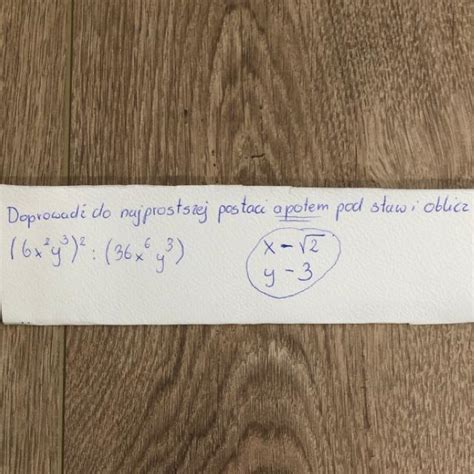 Doprowadź do najprostszej postaci a potem pod staw i oblicz
(6x²y³)² : (36x⁶y³)
x - √2
y - 3